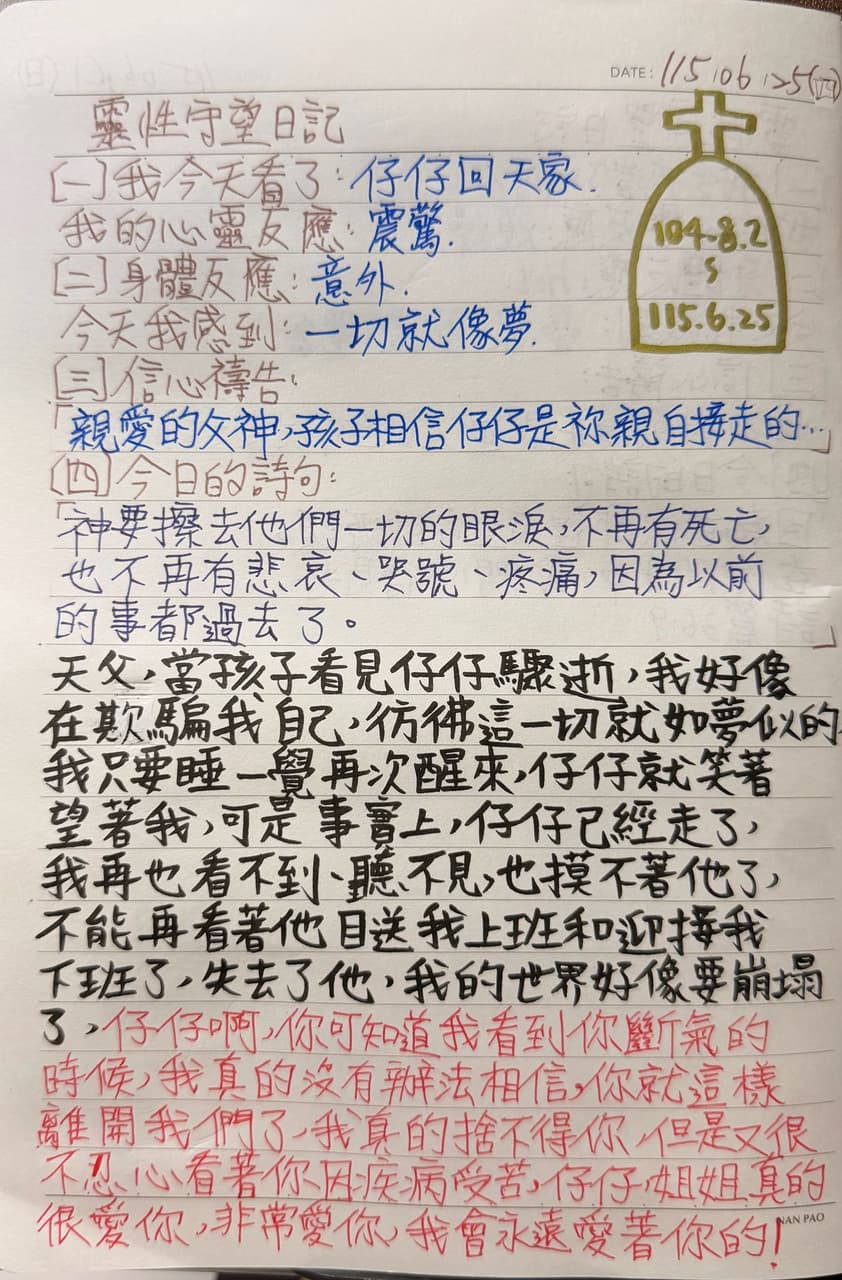 DATE: 115.06.25(四)
靈性守望日記
104.8.2
115.6.25
(一)我今天看了:仔仔回天家.
我的心靈反應:震驚.
(二)身體反應:意外.
今天我感到:一切就像夢.
(三)信心禱告:
「親愛的父神,孩子相信仔仔是祢親自接走的…」
(四)今日的詩句:
「神要擦去他們一切的眼淚,不再有死亡,
也不再有悲哀、哭號、疼痛,因為以前
的事都過去了。」
天父,當孩子看見仔仔驟逝,我好像
在欺騙我自己,彷彿這一切就如夢似的,
我只要睡一覺再次醒來,仔仔就笑著
望著我,可是事實上,仔仔已經走了,
我再也看不到、聽不見,也摸不著他了,
不能再看著他目送我上班和迎接我
下班了,失去了他,我的世界好像要崩塌
了,仔仔啊,你可知道我看到你斷氣的
時候,我真的沒有辦法相信,你就這樣
離開我們了,我真的捨不得你,但是又很
不忍心看著你因疾病受苦,仔仔,姐姐真的
很愛你,非常愛你,我會永遠愛著你的!
NAN PAO